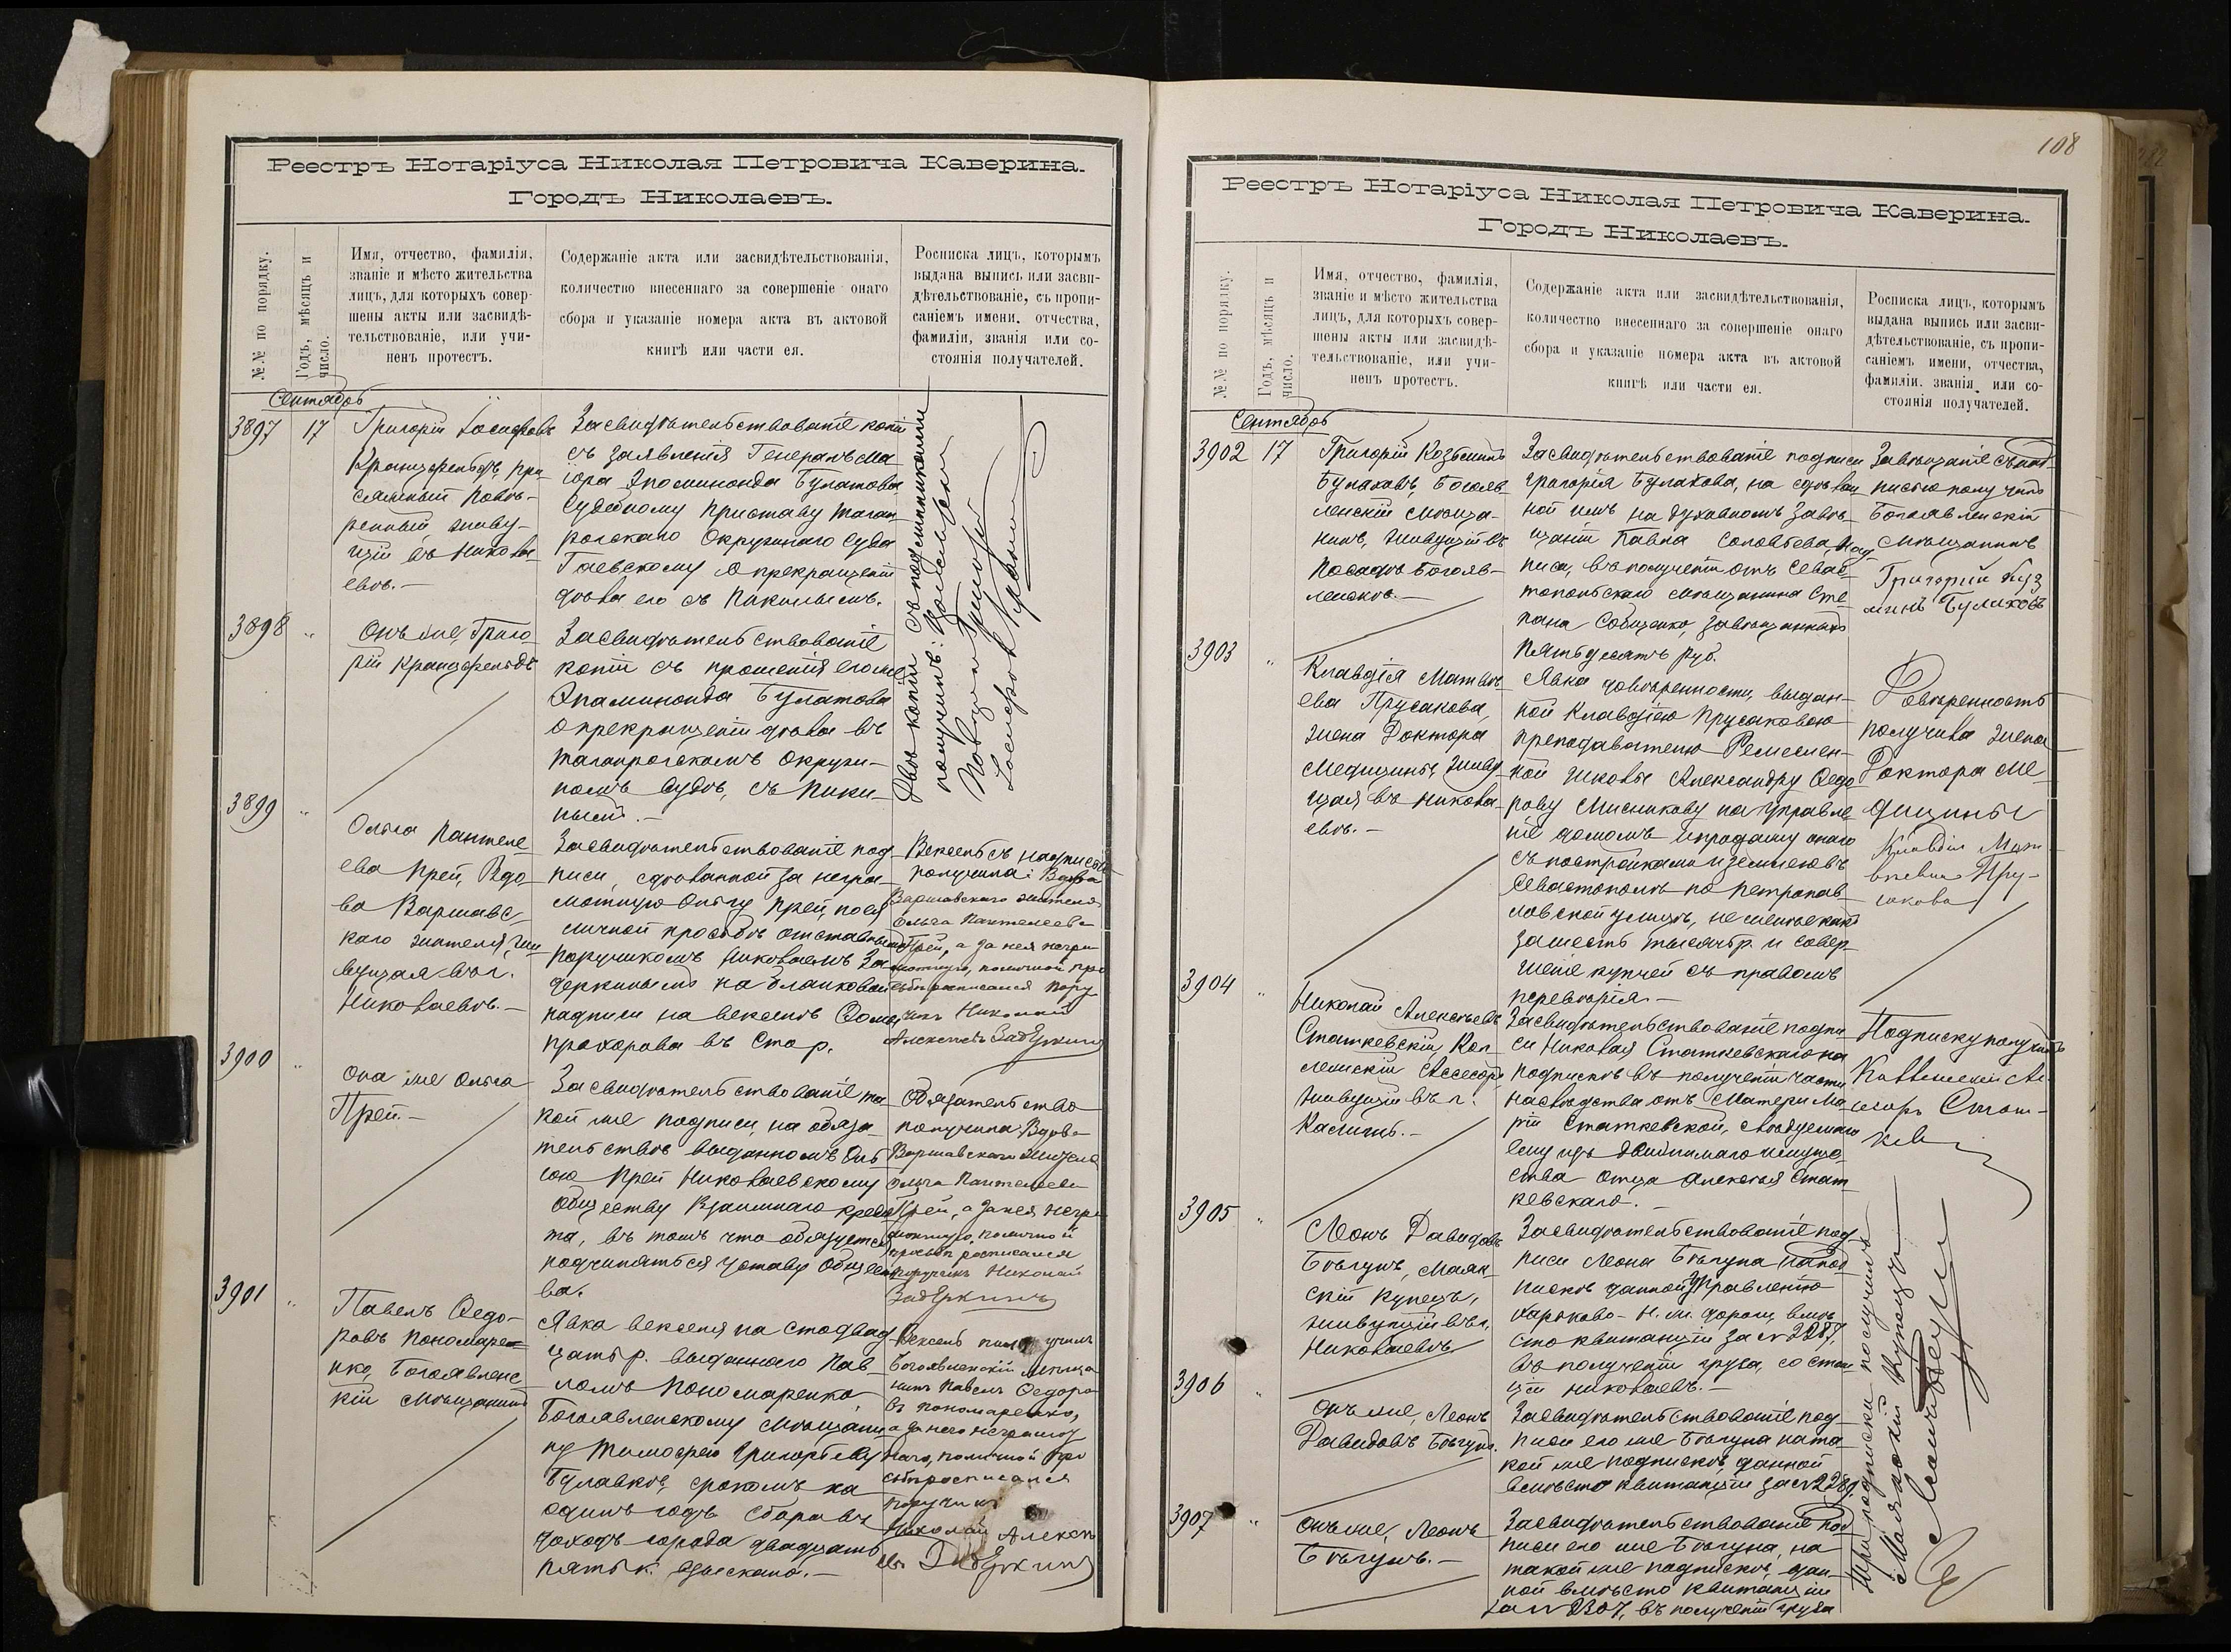 Реестръ Нотаріуса Николая Петровича Каверина.
Городъ Николаевъ.
№№ по порядку.
Годъ, мѣсяцъ и
число.
Имя, отчество, фамилія,
званіе и мѣсто жительства
лицъ, для которыхъ совер-
шены акты или засвидѣ-
тельствованіе, или учи-
ненъ протестъ.
Содержаніе акта или засвидѣтельствованія,
количество внесеннаго за совершеніе онаго
сбора и указаніе номера акта въ актовой
книгѣ или части ея.
Росписка лицъ, которымъ
выдана выпись или засви-
дѣтельствованіе, съ пропи-
саніемъ имени, отчества,
фамиліи, званія или со-
стоянія получателей.
Сентябрь
3897 17
Григорій Іосифовъ
Кранцфельдъ, при-
сяжный повѣ-
ренный живу-
щій въ Никола
евѣ.—
Засвидѣтельствованіе копіи
съ заявленія Генералъ Ма
іора Эпоминонда Булатова
Судебному Приставу Таган
рогскаго Окружнаго Суда
Гаевскому о прекращеніи
дѣла его съ Пикинымъ.
Двѣ копіи съ подлинниками
получилъ:
3898 "
Онъ же, Григо
рій Кранцфельдъ
Засвидѣтельствованіе
копіи съ прошенія его же
Эпаминонда Булатова
о прекращеніи дѣла въ
Таганрогскомъ Окруж-
номъ Судѣ, съ Пики-
нымъ.—
3899 "
Ольга Пантеле
ева Прей, Вдо-
ва Варшавс-
каго жителя, жи
вущая въ г.
Николаевѣ.—
Засвидѣтельствованіе под
писи, сдѣланной за негра-
мотную Ольгу Прей, по ея
личной просьбѣ отставнымъ
поручикомъ Николаемъ За
деркинымъ на бланковой
надписи на векселѣ Ѳомы
Прохорова въ сто р.
Вексель съ надписью
получила: Вдова
Варшавскаго жителя
Ольга Пантелеева
Прей, а за нея негра
мотную, по личной про
сьбѣ росписался Пору
чикъ Николай
Алексѣевъ Задеркинъ
3900 "
Она же Ольга
Прей.—
Засвидѣтельствованіе та
кой же подписи, на обяза-
тельствѣ выданномъ Оль
гою Прей Николаевскому
Обществу Взаимнаго креди
та, въ томъ что обязуется
подчиняться уставу Общест
ва.
Обязательство
получила Вдова
Варшавскаго жителя
Ольга Пантелеева
Прей, а за нея негра
мотную, по личной
просьбѣ росписался
поручикъ Николай
Задеркинъ
3901 "
Павелъ Ѳедо-
ровъ Пономарен
нко, Богоявленс
кій мѣщанинъ
Явка векселя на сто двад
цать р. выданнаго Пав-
ломъ Пономаренко,
Богоявленскому мѣщани
ну Тимофею Григорьеву
Булавкѣ, срокомъ на
одинъ годъ Сбора въ
доходъ города двадцать
пять к. взыскано.—
Вексель получилъ
Богоявленскій мѣща
нинъ Павелъ Ѳедоро
въ Пономаренко,
а за него неграмот
наго, по личной про
сьбѣ росписался
поручикъ
Николай Алексѣ
евъ Задеркинъ
108
Реестръ Нотаріуса Николая Петровича Каверина.
Городъ Николаевъ.
№№ по порядку.
Годъ, мѣсяцъ и
число.
Имя, отчество, фамилія,
званіе и мѣсто жительства
лицъ, для которыхъ совер-
шены акты или засвидѣ-
тельствованіе, или учи-
ненъ протестъ.
Содержаніе акта или засвидѣтельствованія,
количество внесеннаго за совершеніе онаго
сбора и указаніе номера акта въ актовой
книгѣ или части ея.
Росписка лицъ, которымъ
выдана выпись или засви-
дѣтельствованіе, съ пропи-
саніемъ имени, отчества,
фамиліи. званія или со-
стоянія получателей.
Сентябрь
3902 17
Григорій Козьминъ
Булаковъ, Богояв-
ленскій мѣща-
нинъ, живущій въ
посадѣ Богояв-
ленскѣ.—
Засвидѣтельствованіе подписи
Григорія Булакова, на сдѣлан
ной имъ на духовномъ завѣ-
щаніи Павла Соловьева, над
писи, въ полученіи отъ Севас-
топольскаго мѣщанина Сте-
пана Собценко, завѣщанныхъ
пятьдесятъ руб.
Завѣщаніе съ над-
писью получилъ
Богоявленскій
мѣщанинъ
Григорій Куз
минъ Булаковъ
3903 "
Клавдія Матвѣ
ева Прусакова,
жена Доктора
Медицины, живу
щая въ Никола-
евѣ.—
Явка довѣренности, выдан-
ной Клавдіею Прусаковою
преподавателю Ремеслен-
ной школы Александру Ѳедо
рову Мисникову на управле
ніе домомъ и продажу онаго
съ постройками и землею въ
Севастополѣ по Петропав-
ловской улицѣ, не менѣе какъ
за шесть тысячъ р. и совер-
шеніе купчей съ правомъ
перевѣрія.—
Довѣренность
получила жена
Доктора Ме
дицины
Клавдія Мат
вѣевна Пру-
сакова
3904 "
Николай Алексѣевъ
Статкевскій, Кол-
лежскій Ассесоръ
живущій въ г.
Калишѣ.—
Засвидѣтельствованіе подпи
си Николая Статкевскаго на
подпискѣ въ полученіи части
наслѣдства отъ матери Ма
ріи Статкевской, слѣдуемаго
ему изъ движимаго имуще-
ства отца Алексѣя Стат
кевскаго.—
Подписку получилъ
3905 "
Леонъ Давидовъ
Бѣгунъ, Маяк-
скій купецъ,
живущій въ г.
Николаевѣ.
Засвидѣтельствованіе под-
писи Леона Бѣгуна на под
пискѣ данной Управленію
Харьково-Н. ж. дороги, вмѣ
сто квитанціи за № 2287,
въ полученіи груза, со стан
ціи Николаевъ.—
Три подписки получилъ
Маякскій Купецъ
3906 "
Онъ же, Леонъ
Давидовъ Бѣгунъ.
Засвидѣтельствованіе под-
писи его же Бѣгуна на та-
кой же подпискѣ, данной
вмѣсто квитанціи за № 2289.
3907 "
Онъ же, Леонъ
Бѣгунъ.—
Засвидѣтельствованіе под
писи его же Бѣгуна, на
такой же подпискѣ, дан-
ной вмѣсто квитанціи
за № 2307, въ полученіи груза